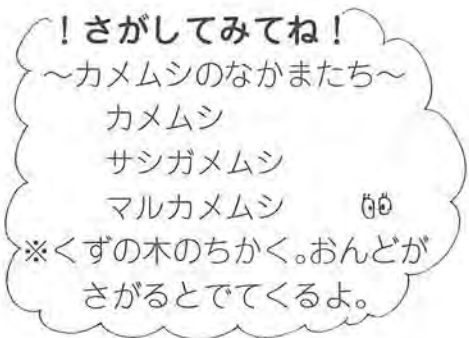 ！さがしてみてね！
～カメムシのなかまたち～
カメムシ
サシガメムシ
マルカメムシ
※くずの木のちかく。おんどが
さがるとでてくるよ。